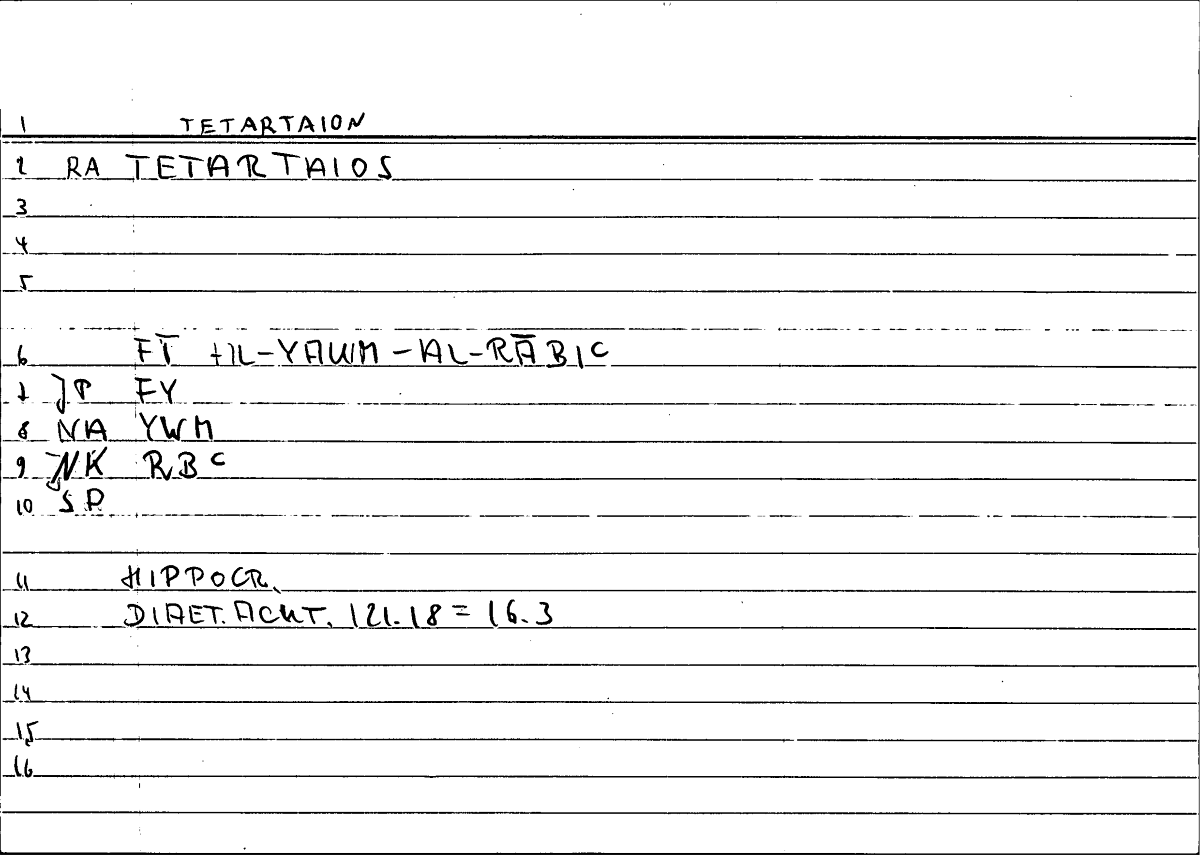 1 TETARTAION
2 RA TETARTAIOS
3
4
5
6 FĪ AL-YAWM-AL-RĀBIC
7 JP FY
8 NA YWM
9 NK RBC
10 SP
11 HIPPOCR.
12 DIAET. ACUT. 121.18 = 16.3
13
14
15
16